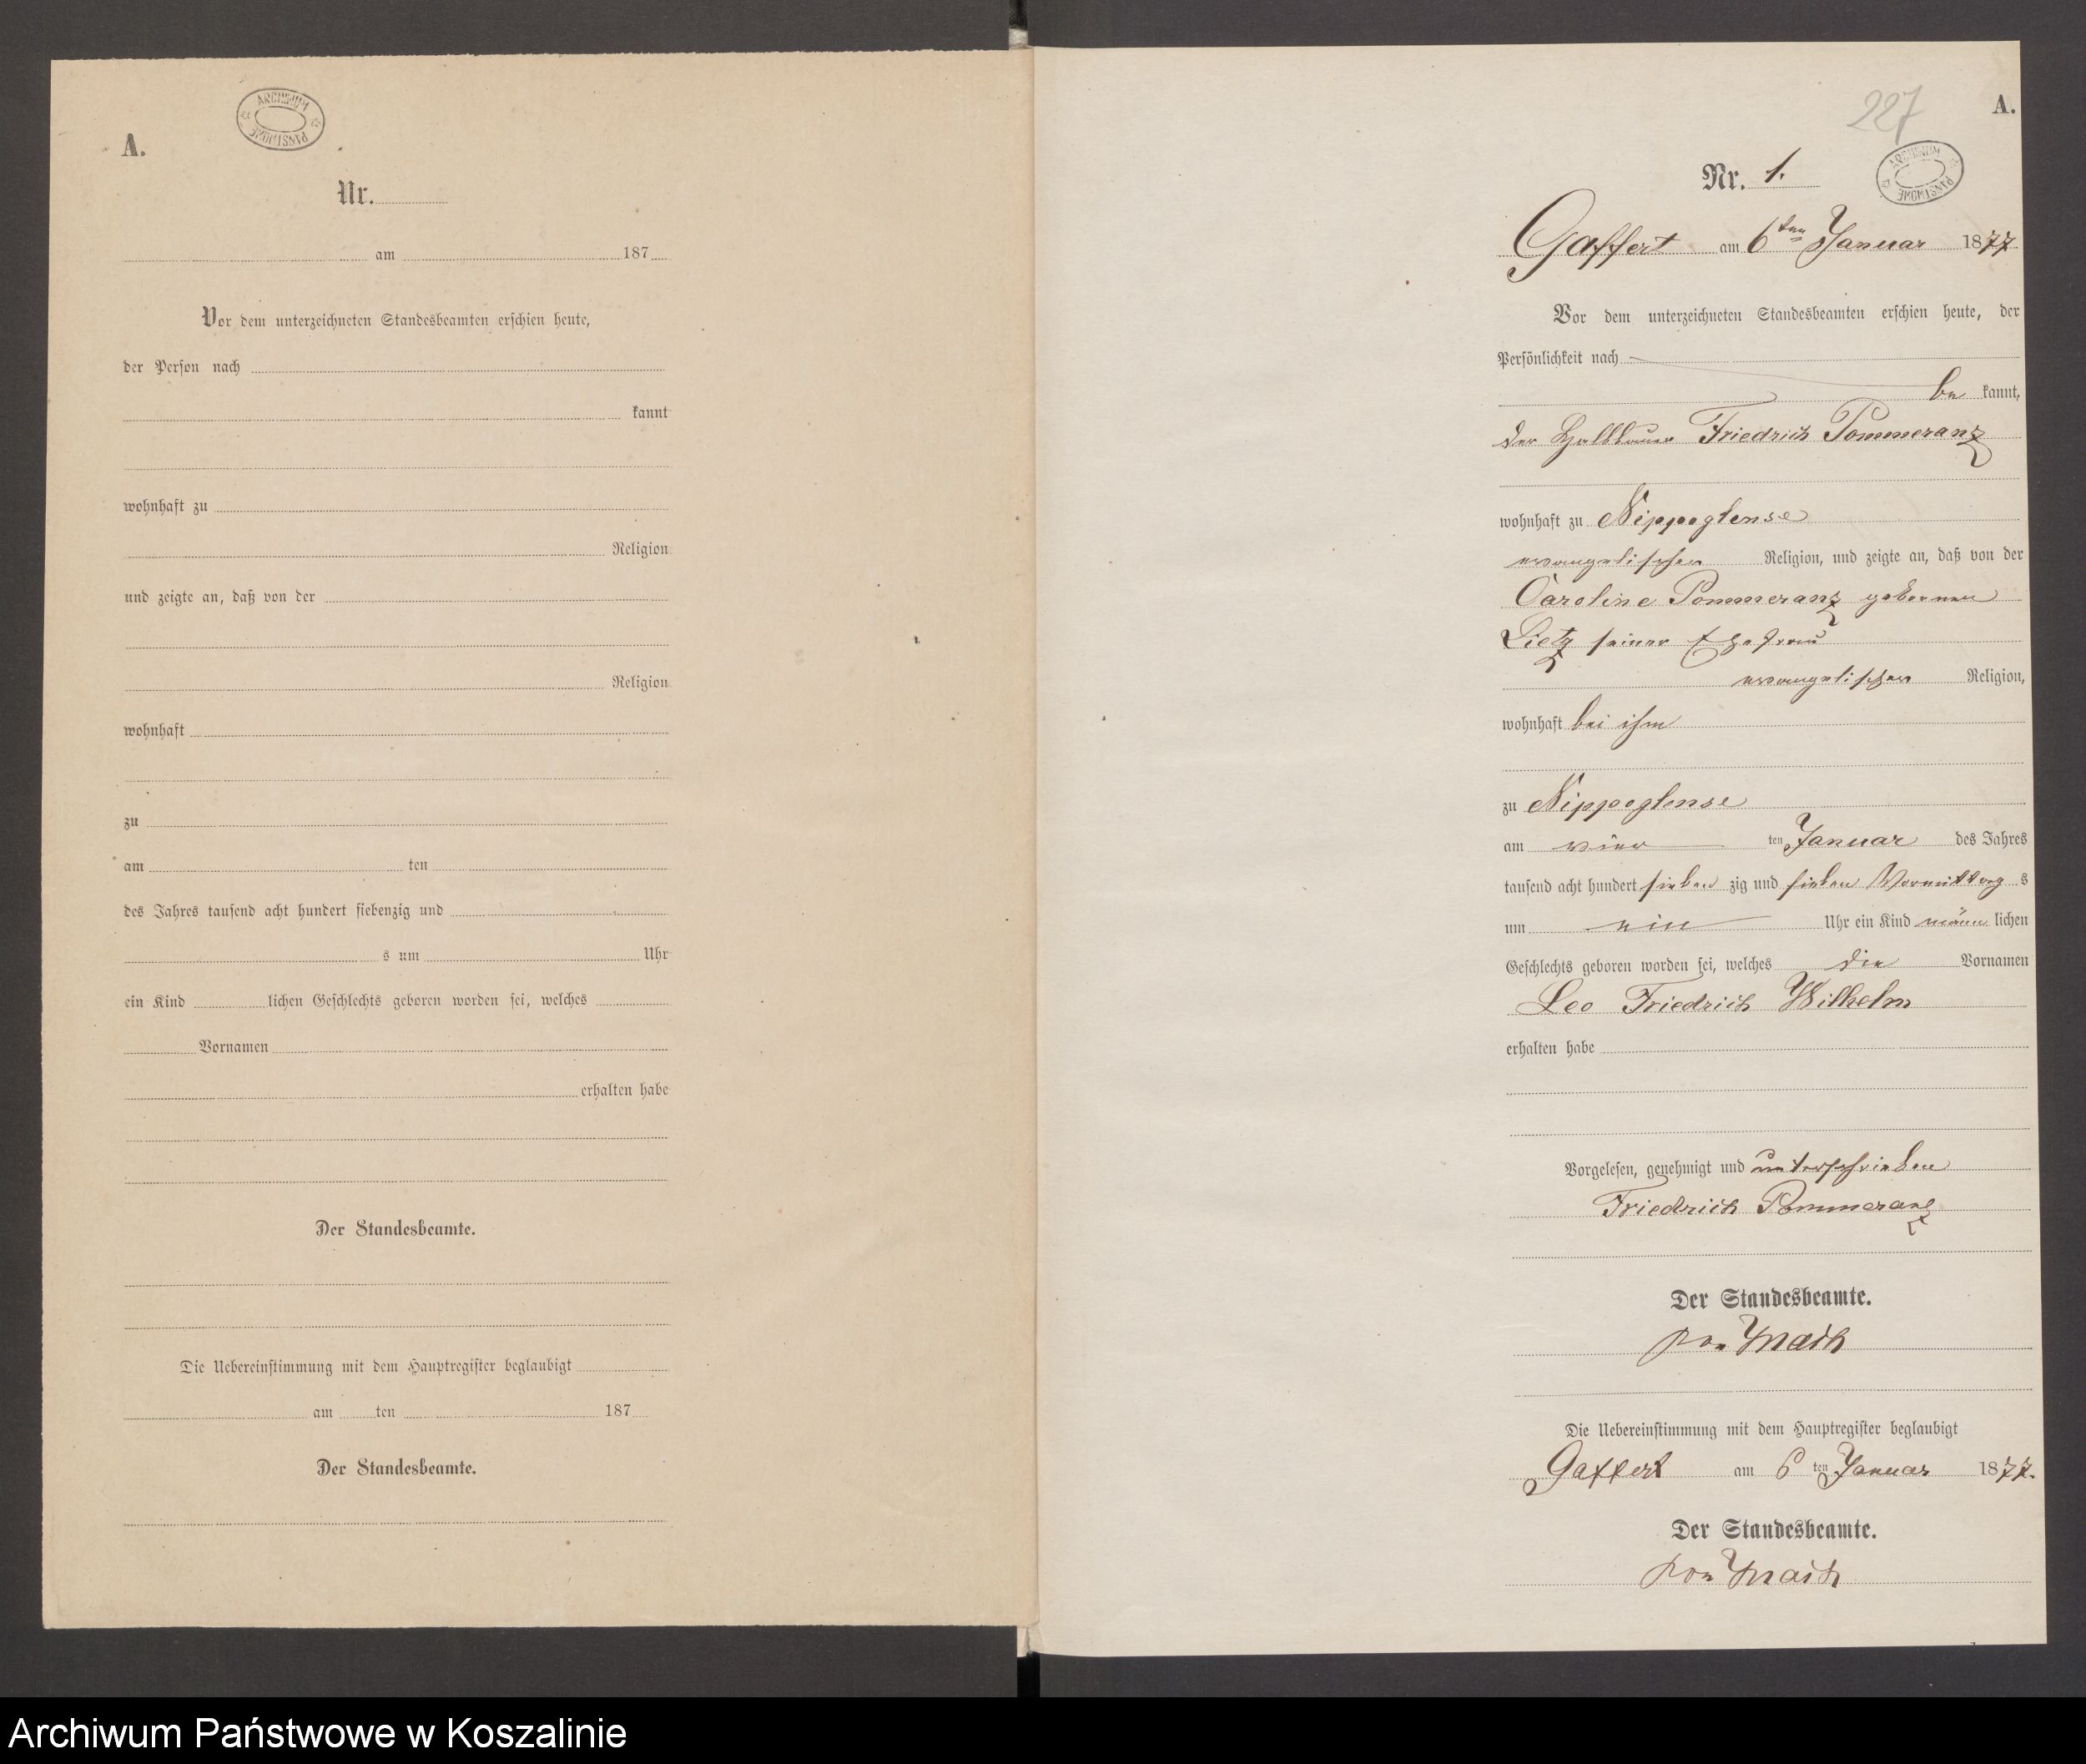 ARCHIWUM PAŃSTWOWE
A.
Nr.
am 187
Vor dem unterzeichneten Standesbeamten erschien heute,
der Person nach
kannt
wohnhaft zu
Religion
und zeigte an, daß von der
Religion
wohnhaft
zu
am ten
des Jahres tausend acht hundert siebenzig und
s um Uhr
ein Kind lichen Geschlechts geboren worden sei, welches
Vornamen
erhalten habe
Der Standesbeamte.
Die Uebereinstimmung mit dem Hauptregister beglaubigt
am ten 187
Der Standesbeamte.
227
A.
Nr. 1.
ARCHIWUM PAŃSTWOWE
Gaffert am 6ten Januar 1877
Vor dem unterzeichneten Standesbeamten erschien heute, der
Persönlichkeit nach
be kannt,
der Halbbauer Friedrich Pommeranz
wohnhaft zu Nippoglense
evangelischer Religion, und zeigte an, daß von der
Caroline Pommeranz geborenen
Lietz seiner Ehefrau
evangelischer Religion,
wohnhaft bei ihm
zu Nippoglense
am vier ten Januar des Jahres
tausend acht hundert sieben zig und sieben Vormittag s
um ein Uhr ein Kind männ lichen
Geschlechts geboren worden sei, welches die Vornamen
Leo Friedrich Wilhelm
erhalten habe
Vorgelesen, genehmigt und unterschrieben
Friedrich Pommeranz
Der Standesbeamte.
von
Die Uebereinstimmung mit dem Hauptregister beglaubigt
Gaffert am 6 ten Januar 1877.
Der Standesbeamte.
von
Archiwum Państwowe w Koszalinie